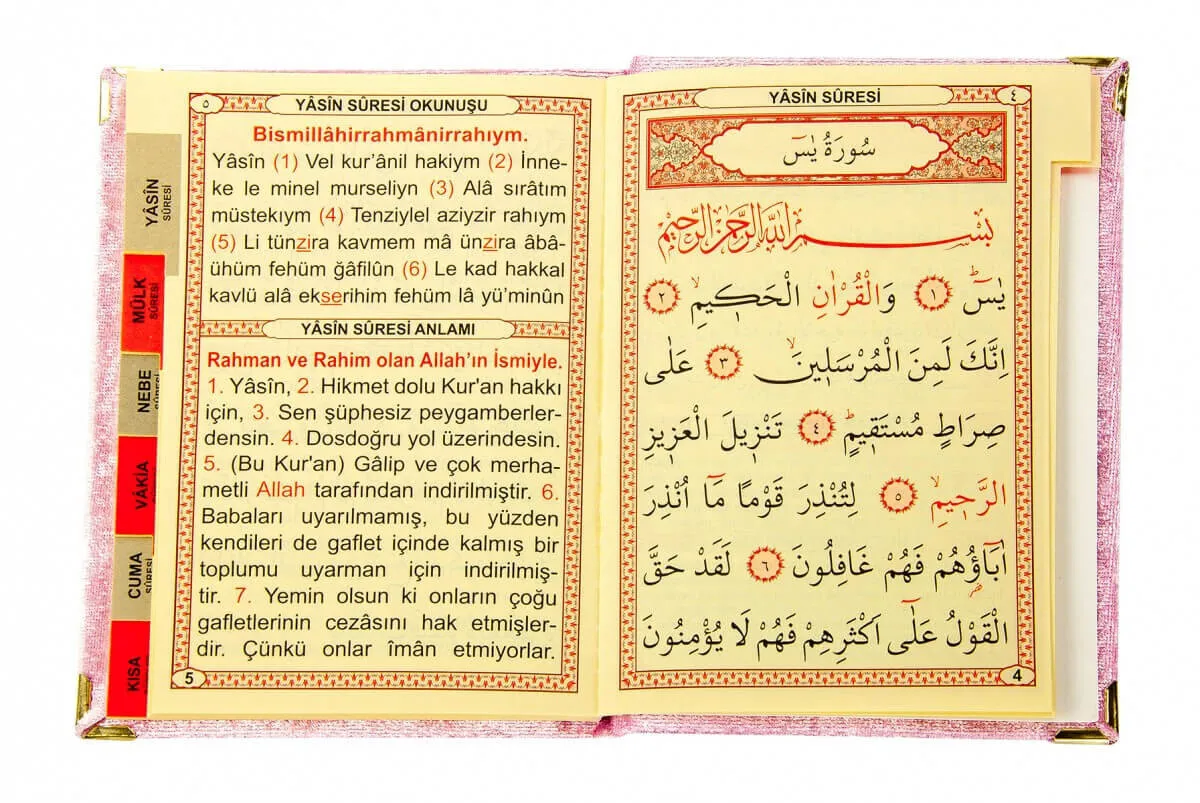 YÂSİN SÛRESİ
٤
سُورَةُ يٰسٓ
بِسْمِ اللّٰهِ الرَّحْمٰنِ الرَّحِيمِ
يٰسٓۜ ﴿١﴾ وَالْقُرْاٰنِ الْحَكٖيمِۙ ﴿٢﴾
اِنَّكَ لَمِنَ الْمُرْسَلٖينَۙ ﴿٣﴾ عَلٰى
صِرَاطٍ مُسْتَقٖيمٍۜ ﴿٤﴾ تَنْزٖيلَ الْعَزٖيزِ
الرَّحٖيمِۙ ﴿٥﴾ لِتُنْذِرَ قَوْمًا مَٓا اُنْذِرَ
اٰبَٓاؤُ۬هُمْ فَهُمْ غَافِلُونَ ﴿٦﴾ لَقَدْ حَقَّ
الْقَوْلُ عَلٰٓى اَكْثَرِهِمْ فَهُمْ لَا يُؤْمِنُونَ
4
٥
YÂSİN SÛRESİ OKUNUŞU
Bismillâhirrahmânirrahıym.
Yâsîn (1) Vel kur’ânil hakiym (2) İnne-
ke le minel murseliyn (3) Alâ sırâtım
müstekıym (4) Tenziylel aziyzir rahıym
(5) Li tünzira kavmem mâ ünzira âbâ-
ühüm fehüm ğâfilûn (6) Le kad hakkal
kavlü alâ ekserihim fehüm lâ yü’minûn
YÂSİN SÛRESİ ANLAMI
Rahman ve Rahim olan Allah’ın İsmiyle.
1. Yâsîn, 2. Hikmet dolu Kur'an hakkı
için, 3. Sen şüphesiz peygamberler-
densin. 4. Dosdoğru yol üzerindesin.
5. (Bu Kur'an) Gâlip ve çok merha-
metli Allah tarafından indirilmiştir. 6.
Babaları uyarılmamış, bu yüzden
kendileri de gaflet içinde kalmış bir
toplumu uyarman için indirilmiş-
tir. 7. Yemin olsun ki onların çoğu
gafletlerinin cezâsını hak etmişler-
dir. Çünkü onlar îmân etmiyorlar.
5
YÂSİN
SÛRESİ
MÜLK
SÛRESİ
NEBE
SÛRESİ
VÂKIA
CUMA
SÛRESİ
KISA